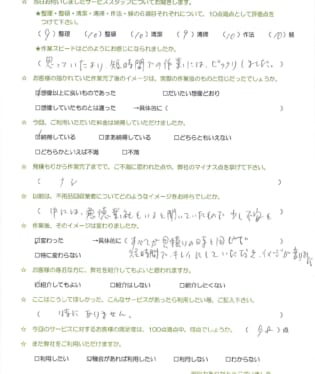 ☆ 当日お伺いしましたサービススタッフについてお聞きします。
整理・整頓・清潔・清掃・作法・躾の6項目それぞれについて、10点満点として評価点を
つけて下さい。
(9)整理 (10)整頓 (10)清潔 (9)清掃 (10)作法 (10)躾
★作業スピードはどのようにお感じになられましたか。
(思っていたより短時間での作業には、ビックリしました。)
☆ お客様の思われていた作業完了後のイメージは、実際の作業後のものと同じだったでしょうか。
☑想像以上に良いものであった □だいたい想像どおり
□想像していたものとは違った →具体的に( )
☆ 今回、ご利用いただいた料金は納得していただけましたか。
☑納得している □まあ納得している □どちらともいえない
□どちらかといえば不満 □不満
☆ 見積もりから作業完了までで、ご不満に思われた点や、弊社のマイナス点を挙げて下さい。
( なし )
☆ 以前は、不用品回収業者についてどのようなイメージをお持ちでしたか。
(中には、悪徳業社もいると聞いていたので少し不安)
☆ 作業後、そのイメージは変わりましたか。
☑変わった →具体的に(すべてが見積りの時と同じで
□特に変わらない 短時間でキレイにしていただき、イメージが
☆ お客様の身近な方に、弊社を紹介してもよいと思われますか。
☑紹介してもよい □紹介はしない □紹介したくない
☆ ここはこうしてほしかった、こんなサービスがあったら利用したい等、ご記入下さい。
(特にありません。)
☆ 今回のサービスに対するお客様の満足度は、100点満点中、何点でしょうか。 点
☆ また弊社をご利用いただけますか。
□利用したい ☑機会があれば利用したい □利用しない □わからない